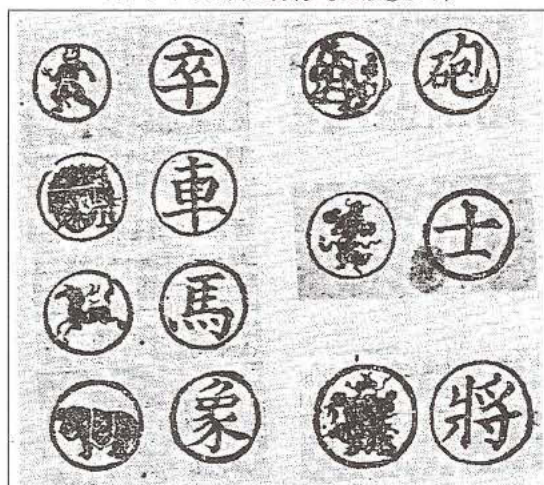 卒
車
馬
象
砲
士
將